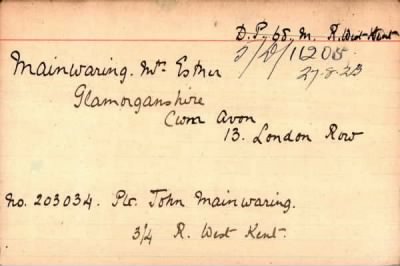 D.P. 68. M. R. West Kent
5/D/11205
27-8-23
Mainwaring. Mrs Esther
Glamorganshire
Cwm Avon
13. London Row
No. 203034. Pte. John Mainwaring.
3/4 R. West Kent.